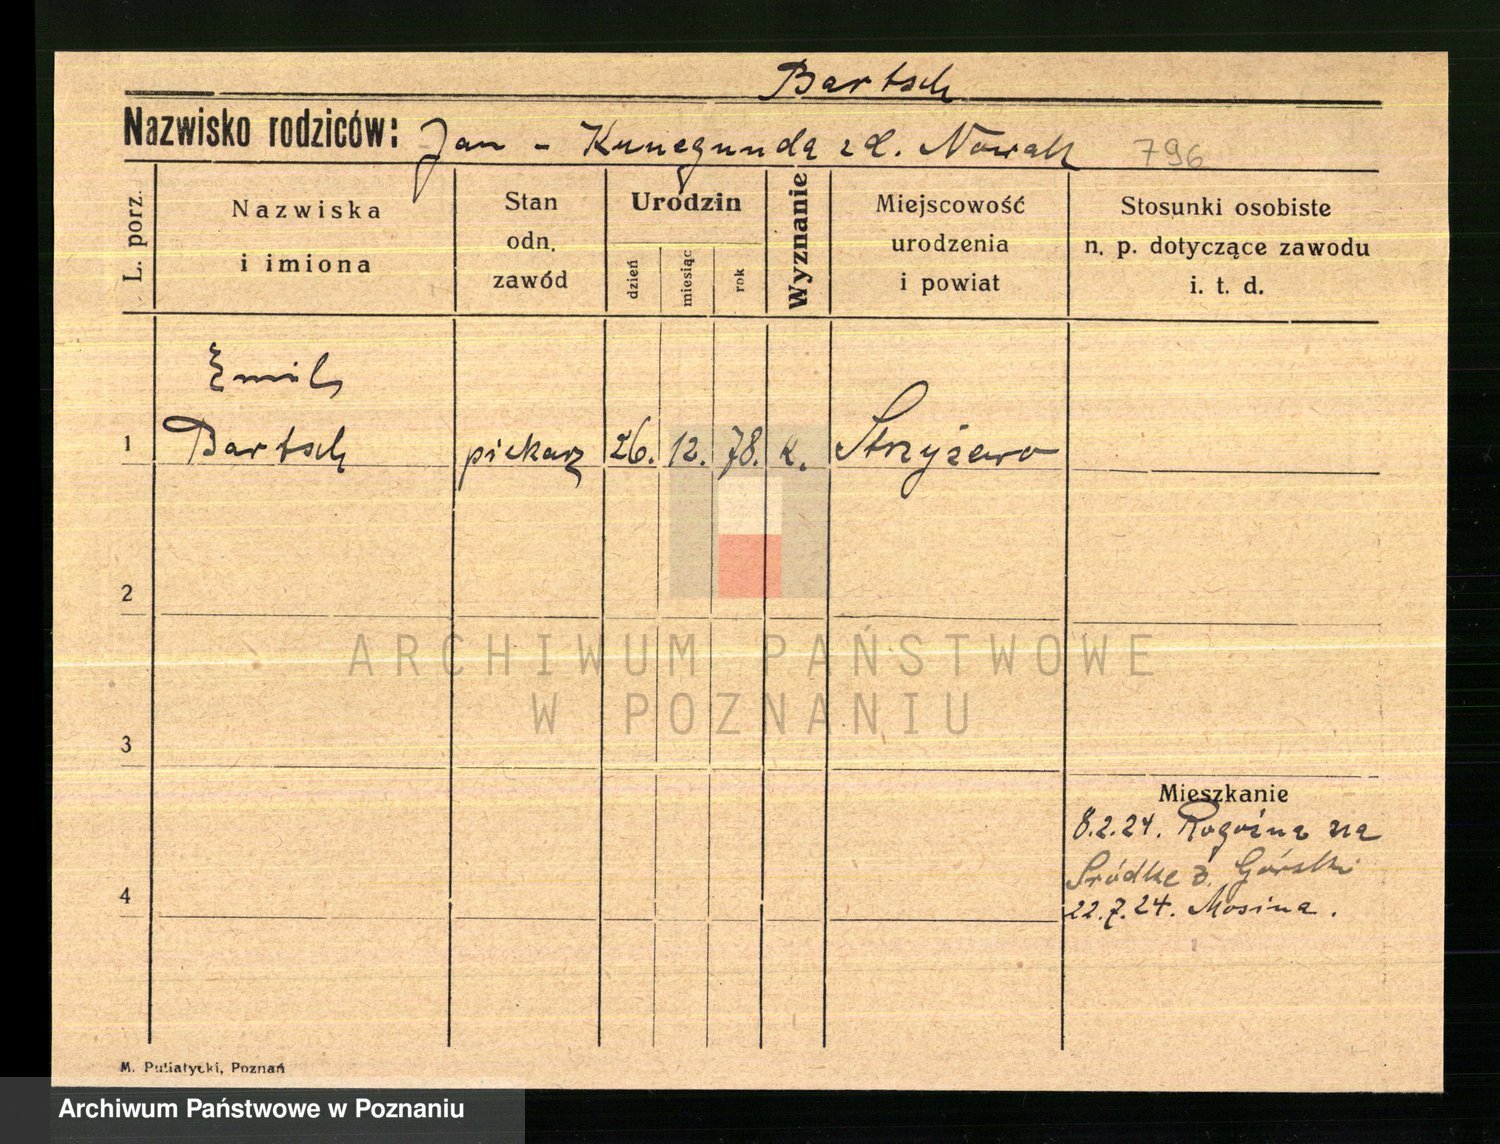 Bartsch
Nazwisko rodziców: Jan - Kunegunda zd. Nowak 796
L. porz.
Nazwiska
i imiona
Stan
odn.
zawód
Urodzin
dzień
miesiąc
rok
Wyznanie
Miejscowość
urodzenia
i powiat
Stosunki osobiste
n. p. dotyczące zawodu
i. t. d.
Emil
1 Bartsch piekarz 26. 12. 78. k. Strzyżewo
2
ARCHIWUM PAŃSTWOWE
W POZNANIU
3
Mieszkanie
8.2.24. Rogoźna na
Śródkę z. Górski
4
22.7.24. Mosina.
M. Puliatycki, Poznań
Archiwum Państwowe w Poznaniu